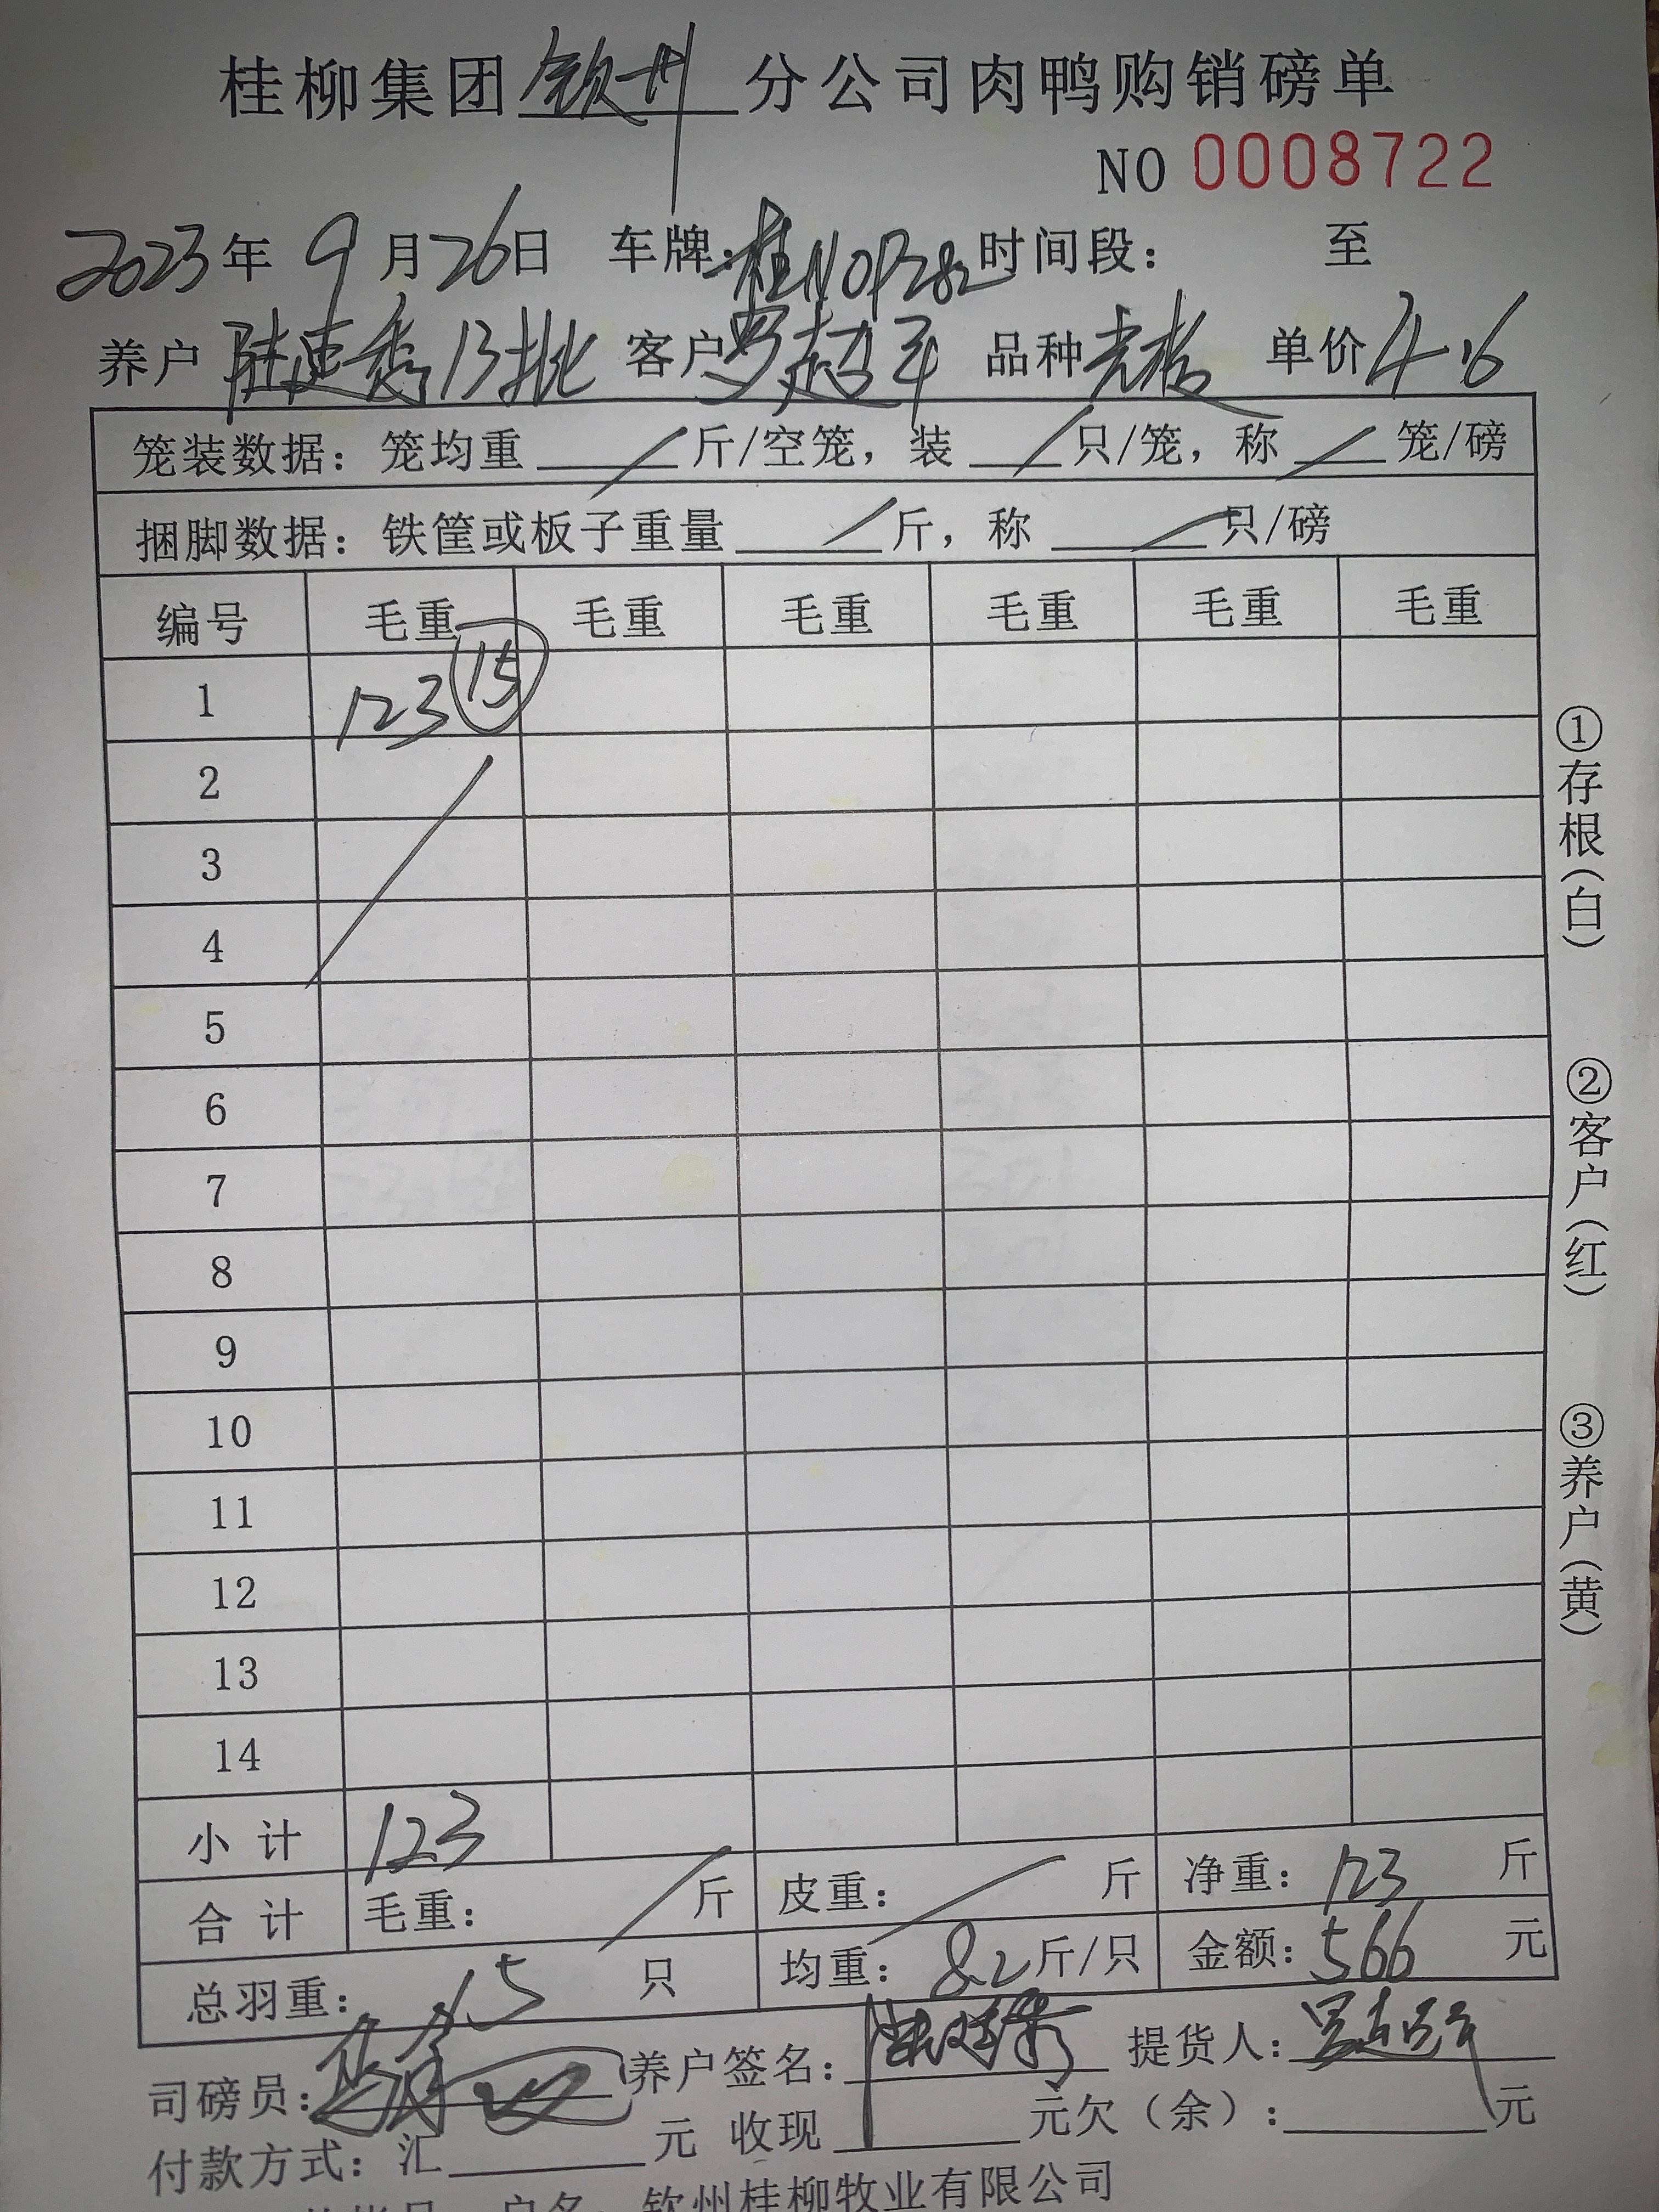 桂柳集团钦州分公司肉鸭购销磅单
NO 0008722
2023年 9月26日 车牌:桂N0P282 时间段: 至
养户 陆建秀13批 客户 罗超平 品种 单价4.6
笼装数据: 笼均重 / 斤/空笼, 装 / 只/笼, 称 / 笼/磅
捆脚数据: 铁筐或板子重量 / 斤, 称 / 只/磅
编号 毛重 毛重 毛重 毛重 毛重 毛重
1 123 ⑮
2
3
4
5
6
7
8
9
10
11
12
13
14
小计 123
合计 毛重: / 斤 皮重: / 斤 净重: 123 斤
总羽重: 15 只 均重: 8.2 斤/只 金额: 566 元
司磅员: 养户签名: 陆建秀 提货人: 罗超平
付款方式: 汇 元 收现 元欠(余): 元
户名: 钦州桂柳牧业有限公司
①存根(白)
②客户(红)
③养户(黄)